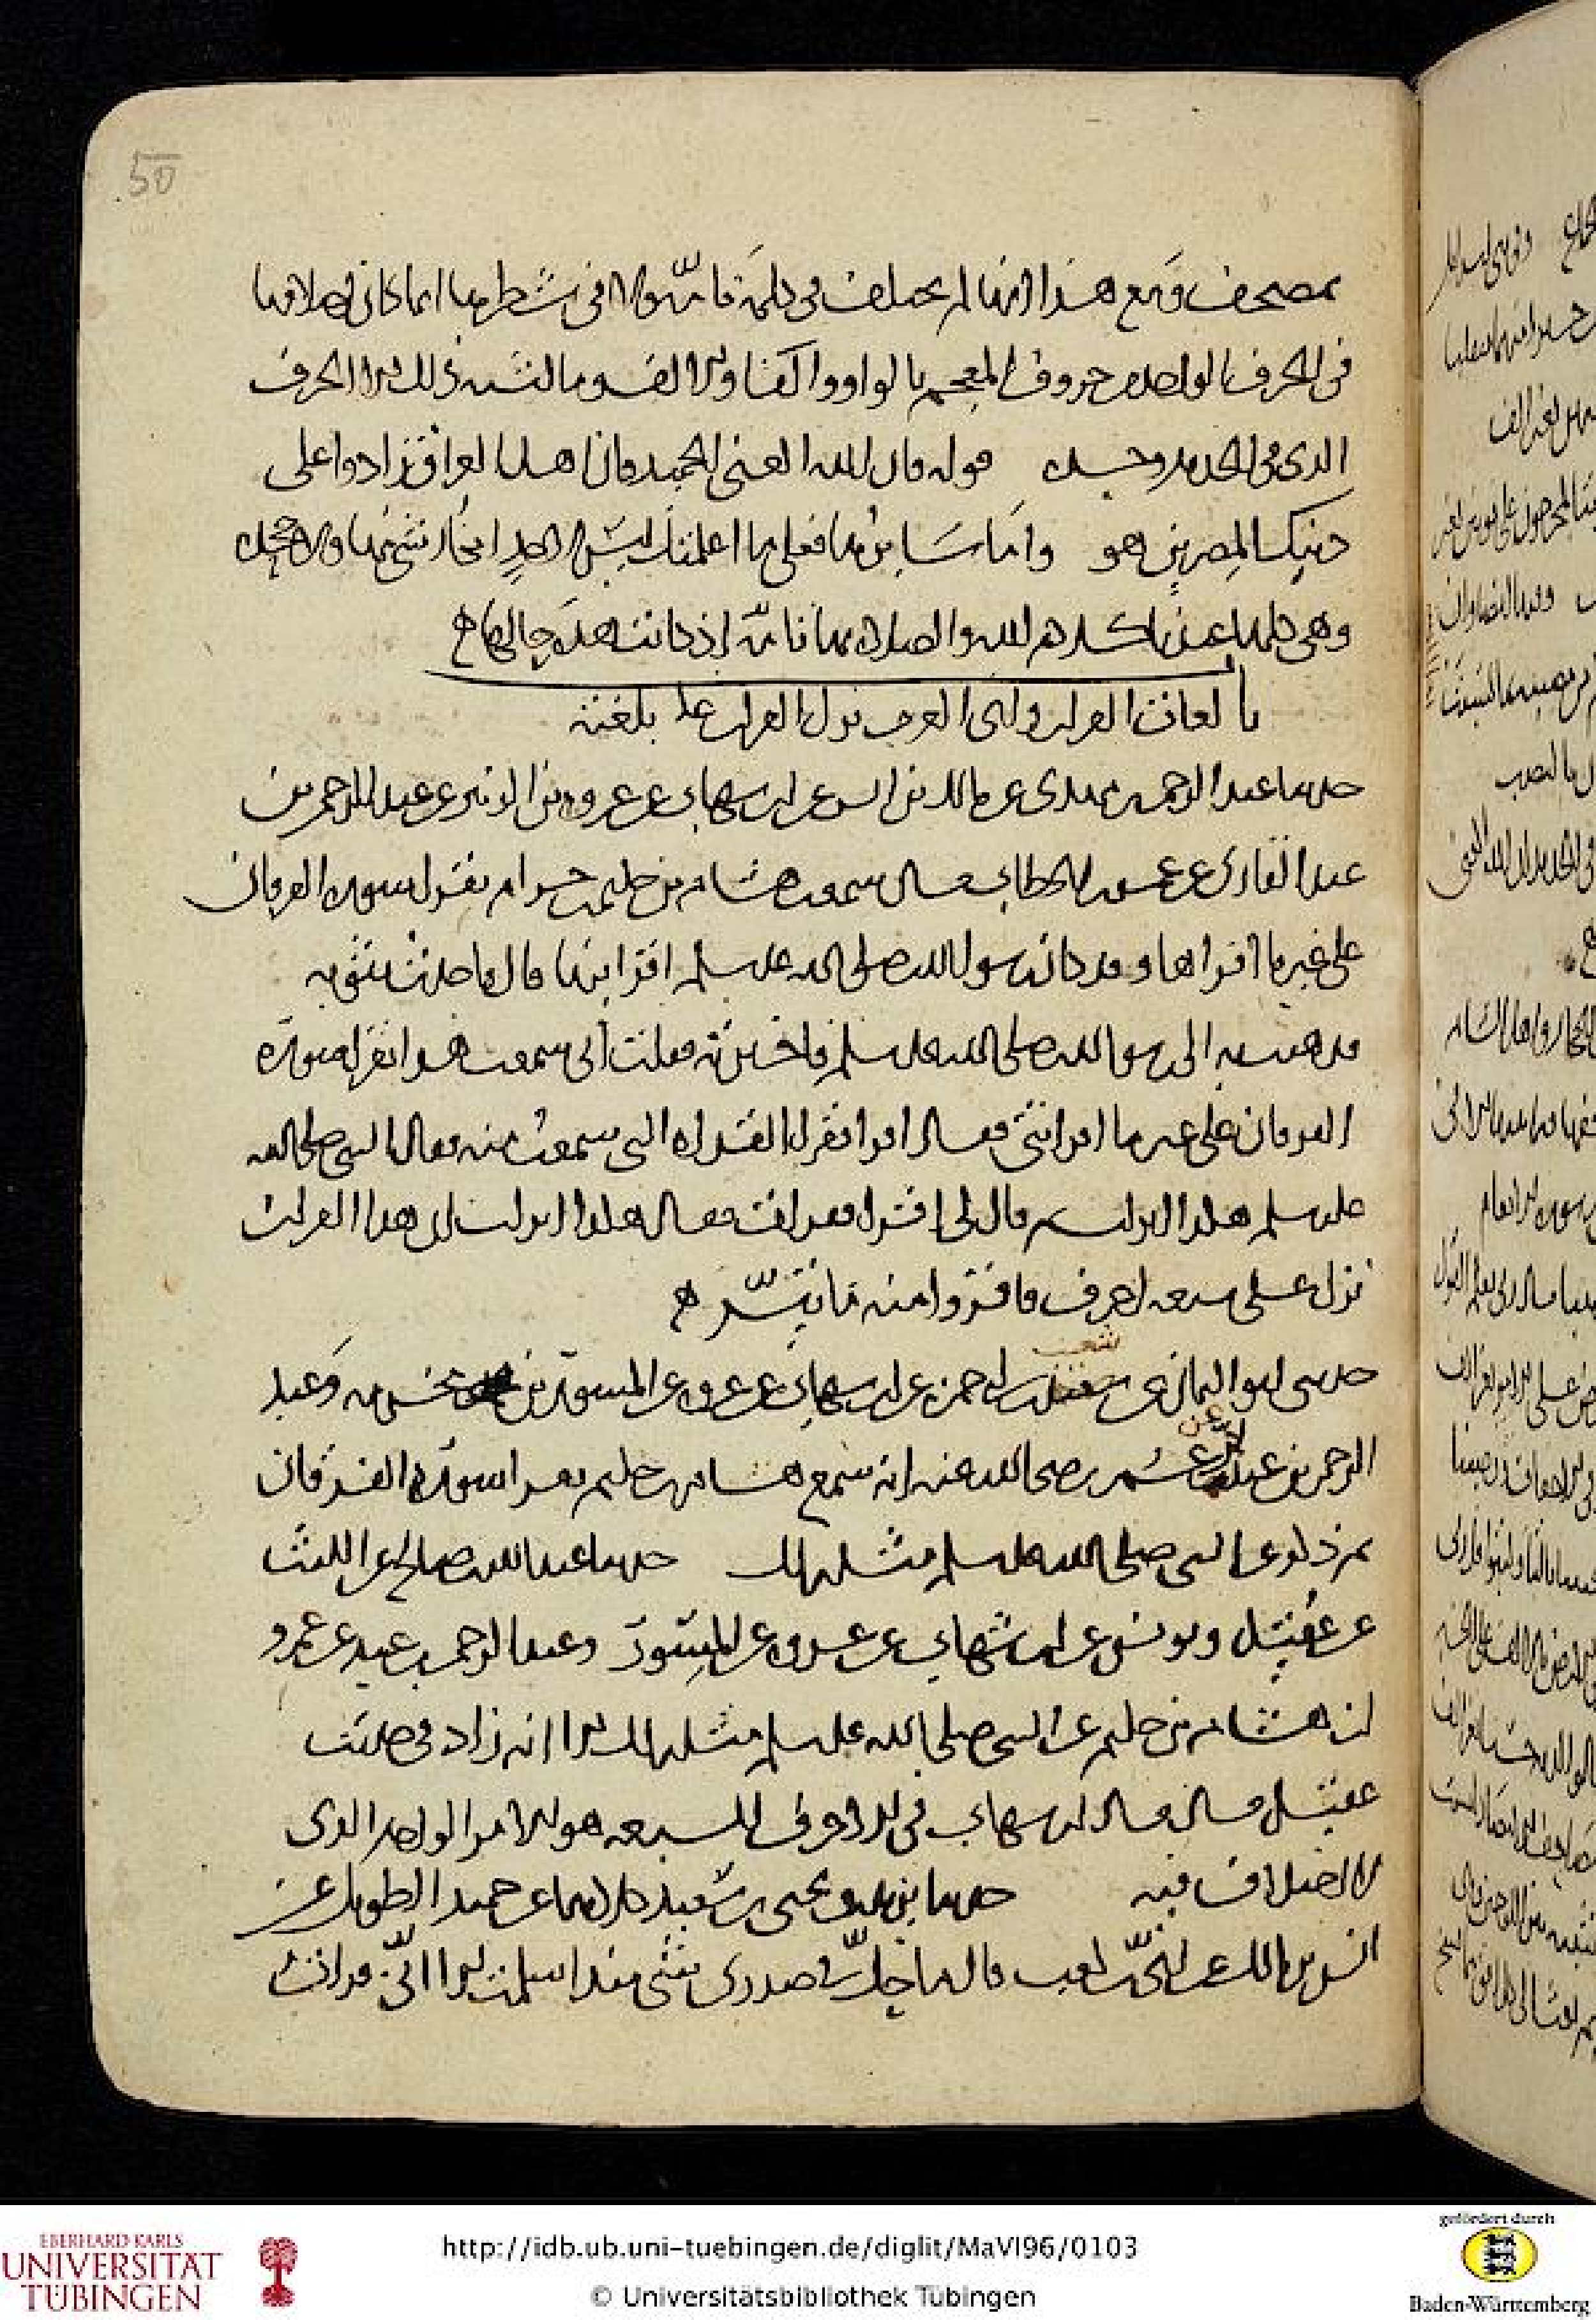 50
بمصحف ومع هذا انها لم تختلف في كلمة تامة ولا في شطرها انما كان اختلافها
في الحرف الواحد من حروف المعجم بالواو والفا والالف وما اشبه ذلك الا الحرف
الذي في الحديد وحده قوله فان الله الغني الحميد فان اهل العراق زادوا على
ذينك المصرين هو واما سايرها فعلى ما اعلمتك ليس لاحد انكار شي منها ولا جحده
وهي كلها عندنا كلام الله والصلاة بها تامة اذ كانت هذه حالها
باب لغات القران واي العرب نزل القران بلغته
حدثنا عبد الرحمن بن مهدي عن مالك بن انس عن ابن شهاب عن عروة بن الزبير عن عبد الرحمن بن
عبد القاري عن عمر بن الخطاب قال سمعت هشام بن حكيم بن حزام يقرا سورة الفرقان
على غير ما اقراها وقد كان رسول الله صلى الله عليه وسلم اقرانيها قال فاخذت بثوبه
فذهبت به الى رسول الله صلى الله عليه وسلم فاخبرته فقلت اني سمعت هذا يقرا سورة
الفرقان على غير ما اقراتني فقال اقرا فقرا القراة التي سمعت منه فقال النبي صلى الله
عليه وسلم هكذا انزلت ثم قال لي اقرا فقرات فقال هكذا انزلت ان هذا القران
نزل على سبعة احرف فاقروا منه ما تيسر
حدثني ابو اليمان عن شعيب بن ابي حمزة عن ابن شهاب عن عروة عن المسور بن مخرمة وعبد
الرحمن بن عبد عن عمر رضي الله عنه انه سمع هشام بن حكيم يقرا سورة الفرقان
ثم ذكر عن النبي صلى الله عليه وسلم مثل ذلك حدثنا عبد الله بن صالح عن الليث
عن عقيل ويونس عن ابن شهاب عن عروة عن المسور وعبد الرحمن بن عبد عن عمرو
ان هشام بن حكيم عن النبي صلى الله عليه وسلم مثل ذلك الا انه زاد في حديث
عقيل قال قال ابن شهاب في الاحرف السبعة هو الامر الواحد الذي
لا اختلاف فيه حدثنا يزيد ويحيى بن سعيد كلاهما عن حميد الطويل عن
انس بن مالك عن ابي بن كعب قال ما حك في صدري شي منذ اسلمت الا اني قرات
EBERHARD KARLS
UNIVERSITÄT
TÜBINGEN
http://idb.ub.uni-tuebingen.de/diglit/MaVI96/0103
© Universitätsbibliothek Tübingen
gefördert durch
Baden-Württemberg